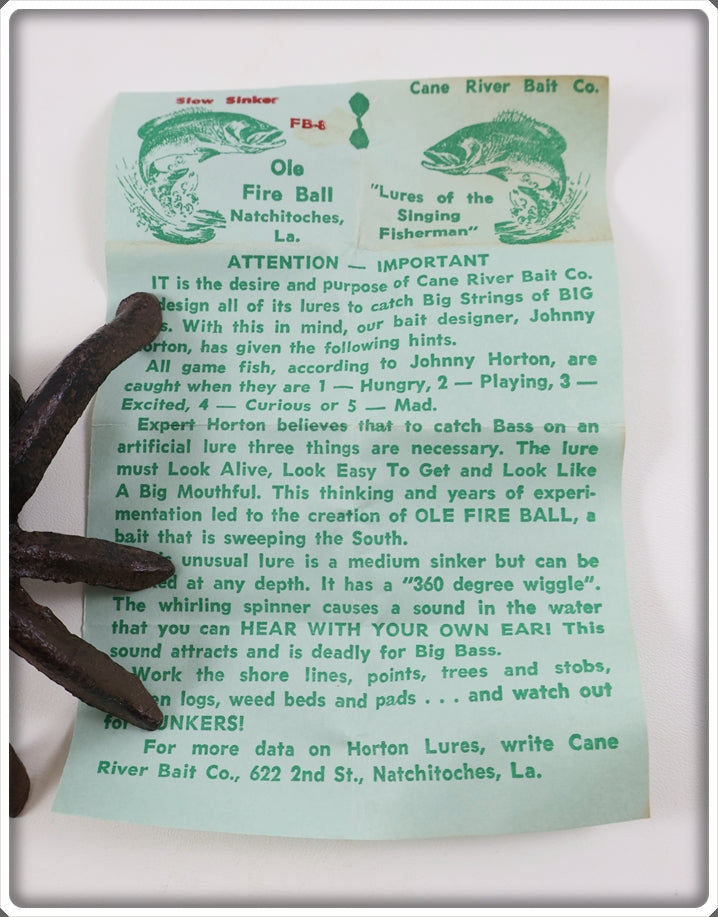 Cane River Bait Co.
Slow Sinker
FB-8
Ole
Fire Ball
Natchitoches,
La.
"Lures of the
Singing
Fisherman"
ATTENTION — IMPORTANT
IT is the desire and purpose of Cane River Bait Co.
design all of its lures to catch Big Strings of BIG
With this in mind, our bait designer, Johnny
Horton, has given the following hints.
All game fish, according to Johnny Horton, are
caught when they are 1 — Hungry, 2 — Playing, 3 —
Excited, 4 — Curious or 5 — Mad.
Expert Horton believes that to catch Bass on an
artificial lure three things are necessary. The lure
must Look Alive, Look Easy To Get and Look Like
A Big Mouthful. This thinking and years of experi-
mentation led to the creation of OLE FIRE BALL, a
bait that is sweeping the South.
unusual lure is a medium sinker but can be
at any depth. It has a "360 degree wiggle".
The whirling spinner causes a sound in the water
that you can HEAR WITH YOUR OWN EAR! This
sound attracts and is deadly for Big Bass.
Work the shore lines, points, trees and stobs,
logs, weed beds and pads . . . and watch out
for
For more data on Horton Lures, write Cane
River Bait Co., 622 2nd St., Natchitoches, La.